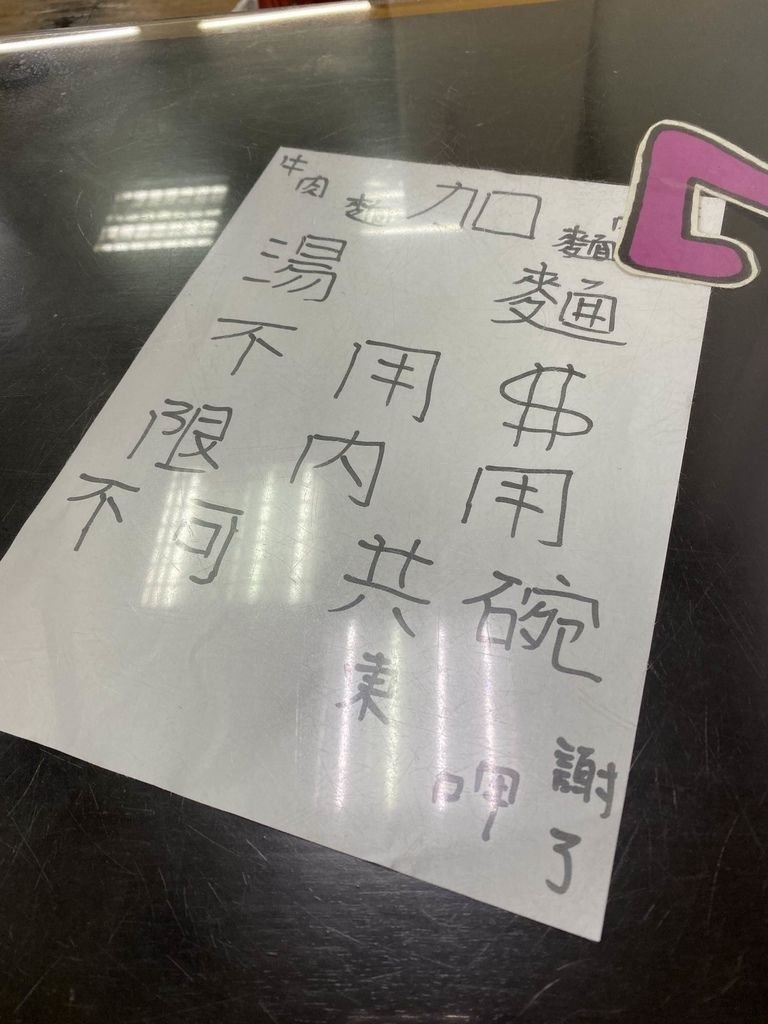 牛肉麵 加 麵
湯 麵
不用$
限內用
不可共碗
呷
謝了